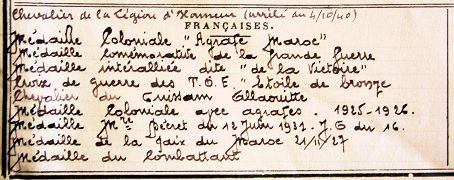 Chevalier de la Légion d'Honneur (arrêté du 4/10/40)
FRANÇAISES.
Médaille Coloniale "Agrafe Maroc"
Médaille Commémorative de la Grande Guerre
Médaille interalliée dite "de la Victoire"
Croix de guerre des T.O.E. "Etoile de bronze
Chevalier du Ouissam Allaouitte
Médaille Coloniale avec agrafes . 1925-1926.
Médaille Mre Décret du 12 Juin 1932. J.O du 16.
Médaille de la Paix du Maroc 21/11/27
Médaille du Combattant